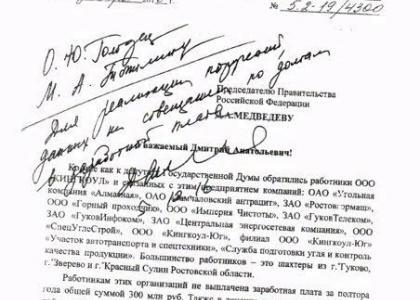 № 5.2-19/4300
О. Ю. Голодец
М. А.
Для реализации поручений,
данных на совещании по долгам
Председателю Правительства
Российской Федерации
Д.А.МЕДВЕДЕВУ
в заработной плате
важаемый Дмитрий Анатольевич!
как к депутату Государственной Думы обратились работники ООО
«КИНГКОУЛ» и связанных с этим предприятием компаний: ОАО «Угольная
компания «Алмазная», ОАО «Замчаловский антрацит», ЗАО «Ростовгормаш»,
ООО «Горный проходчик», ООО «Империя Чистоты», ЗАО «ГуковТелеком»,
ЗАО «ГуковИнфоком», ЗАО «Центральная энергосетевая компания», ООО
«СпецУглеСтрой», ООО «Кингкоул-Юг», филиал ООО «Кингкоул-Юг»
«Участок автотранспорта и спецтехники», «Служба подготовки угля и контроль
качества продукции». Большинство работников – это шахтеры из г.Гуково,
г.Зверево и г.Красный Сулин Ростовской области.
Работникам этих организаций не выплачена заработная плата за полтора
года общей суммой 300 млн руб. Также в